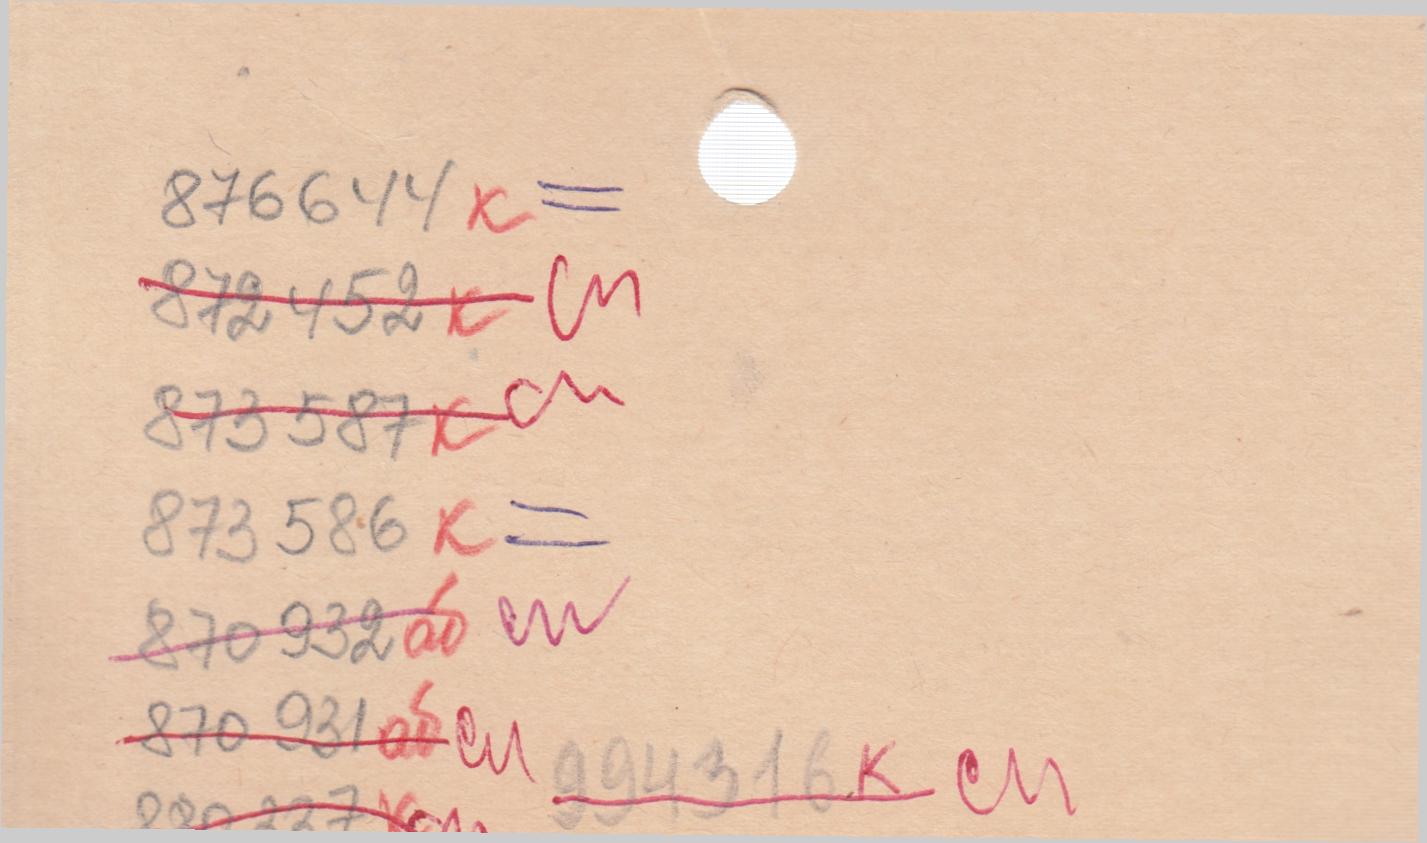 876644 к =
872452 к сп
873587 к сп
873586 к =
870932 аб сп
870931 аб сп
994316 к сп